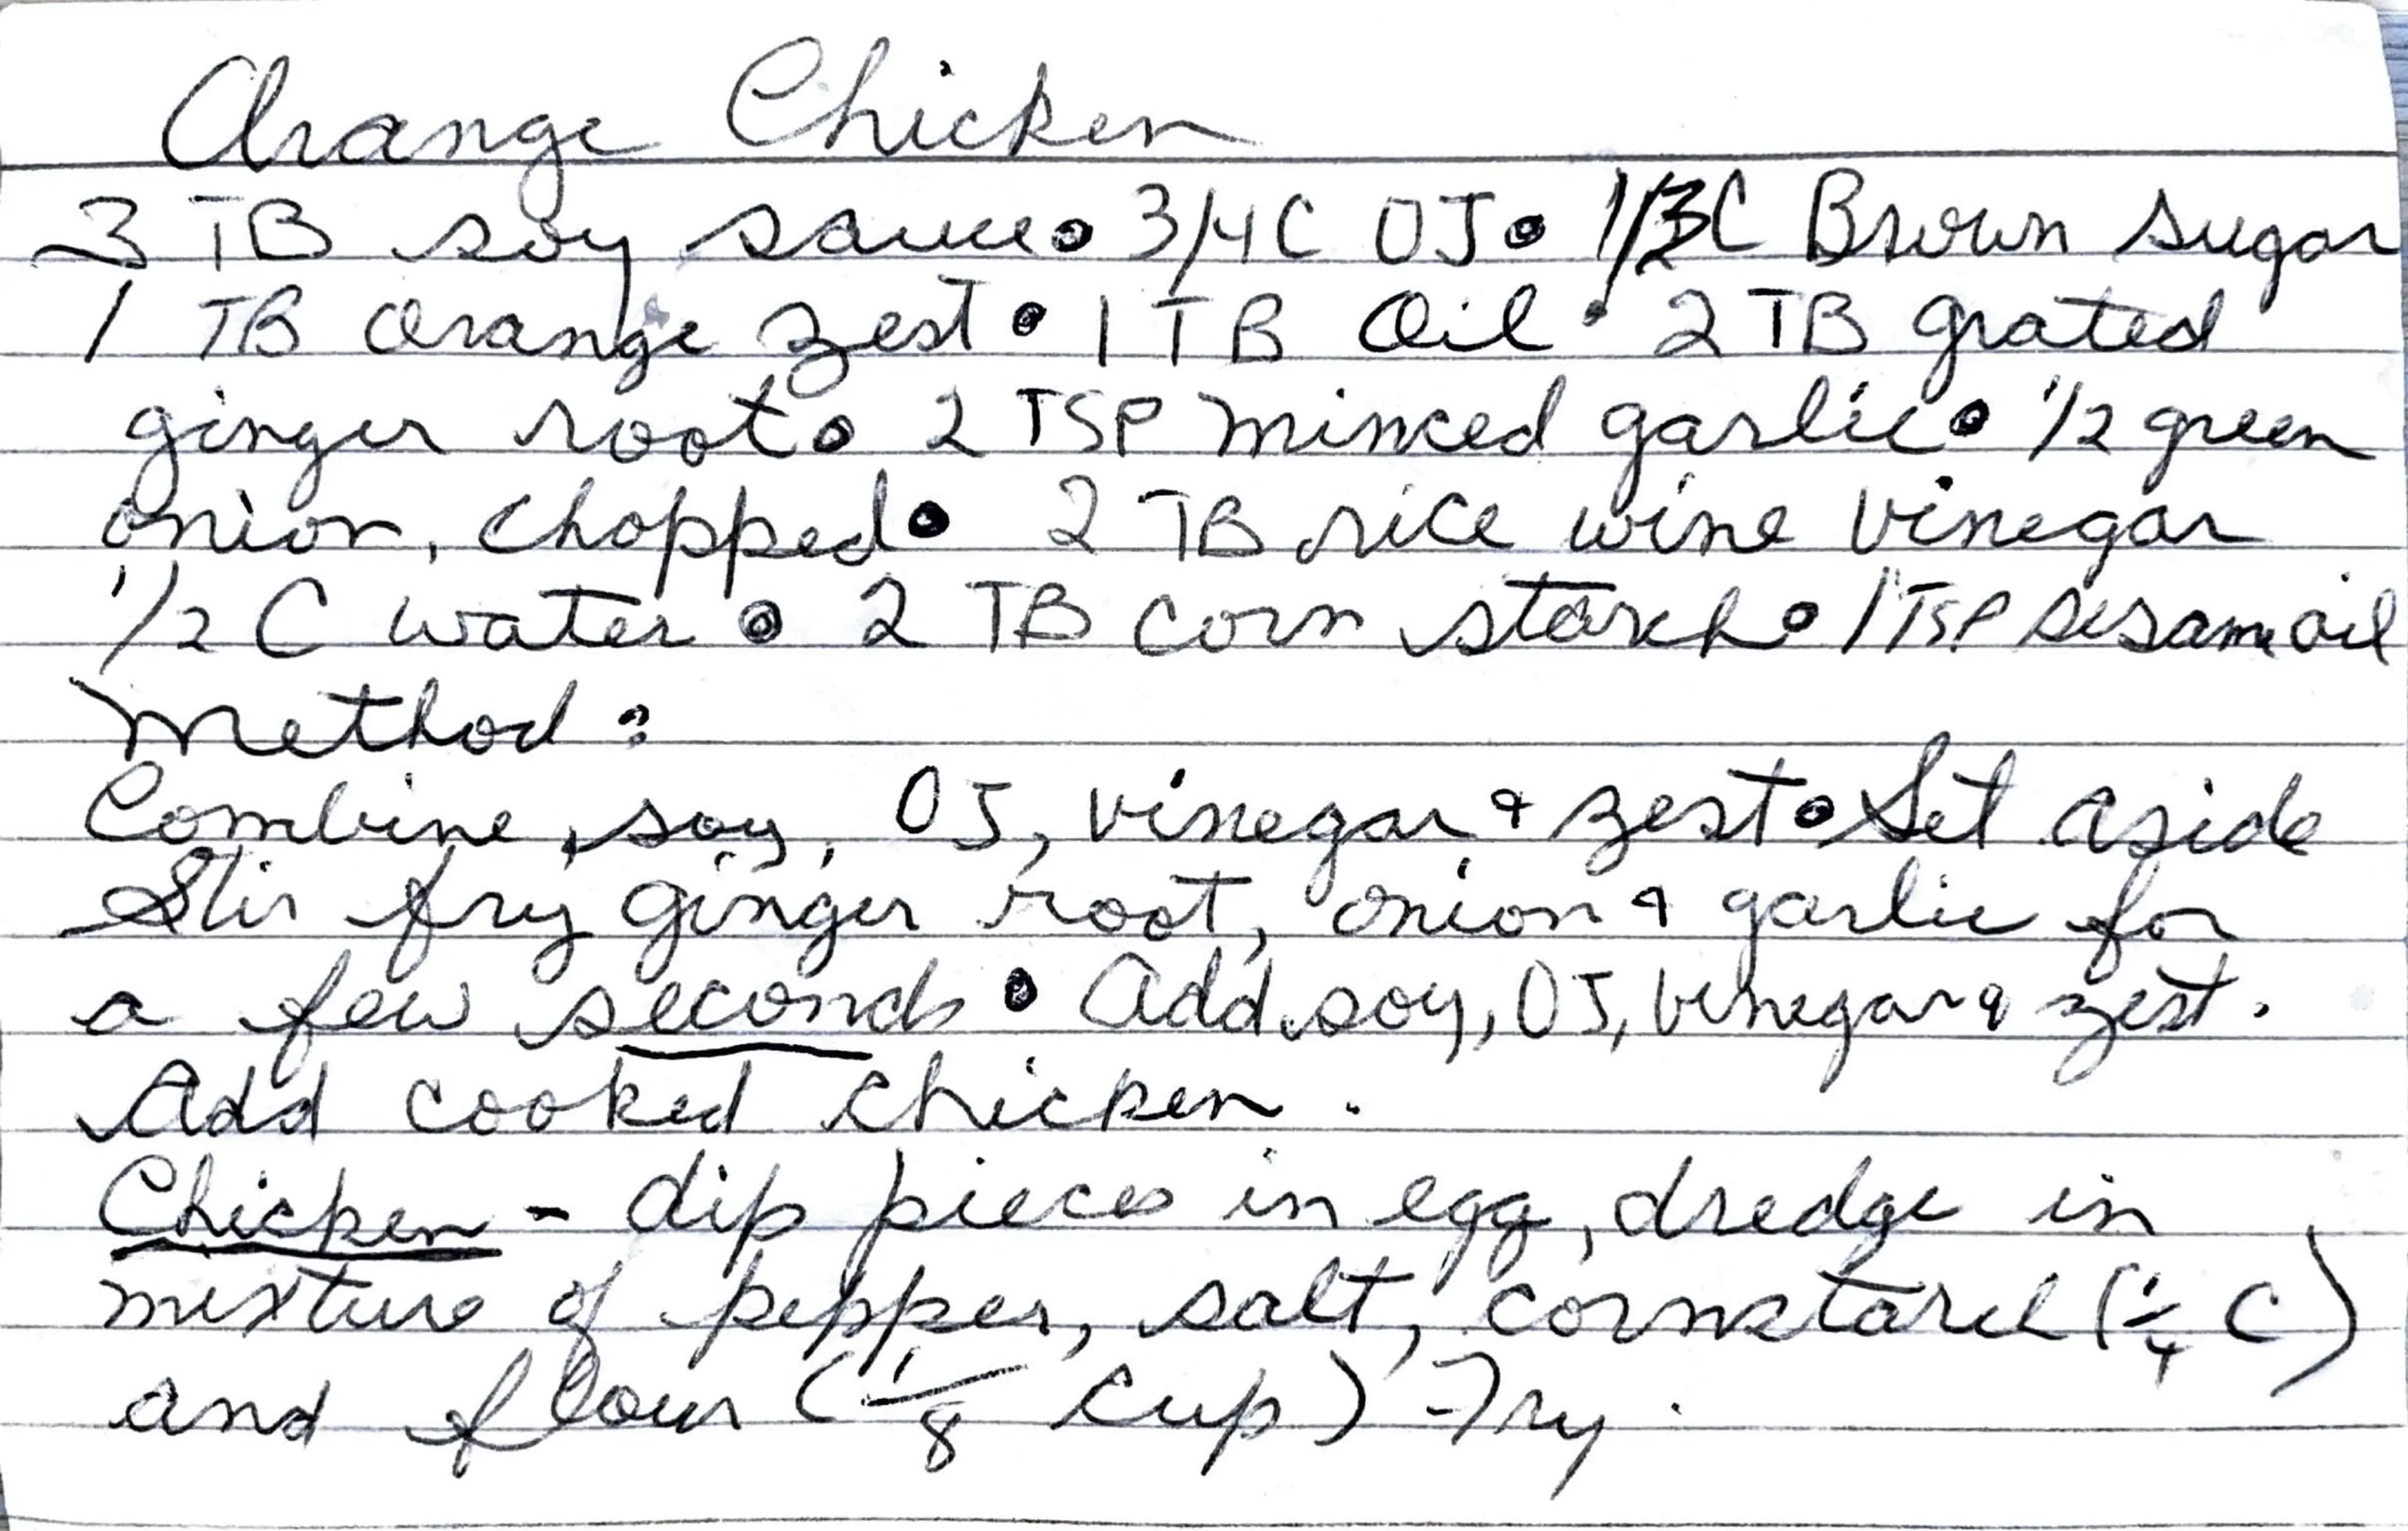 Orange Chicken
3 TB soy sauce • 3/4 C OJ • C Brown sugar
1 TB orange zest • 1 TB Oil • 2 TB grated
ginger root • 2 TSP minced garlic • 1/2 green
onion, chopped • 2 TB rice wine vinegar
1/2 C water • 2 TB corn starch • 1 TSP sesame oil
Method:
Combine, soy, OJ, vinegar & zest • Set aside
Stir fry ginger root, onion & garlic for
a few seconds • Add soy, OJ, vinegar & zest.
Add cooked chicken.
Chicken - dip pieces in egg, dredge in
mixture of pepper, salt, cornstarch (1/4 C)
and flour (1/8 cup) Fry.